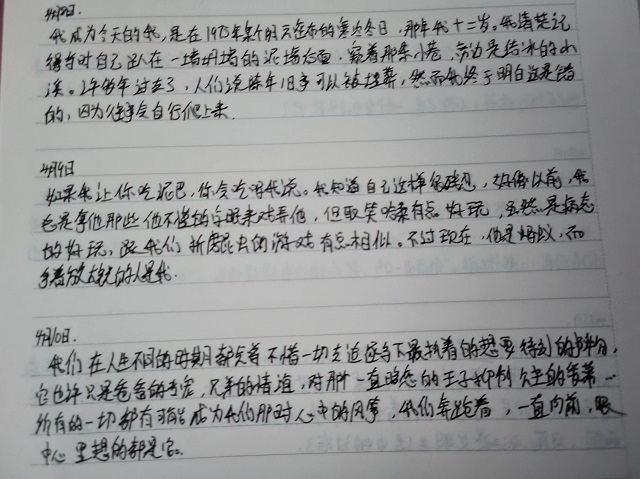 4月8日.
我成为今天的我，是在1975年某个阴云密布的寒冷冬日，那年我十二岁。我清楚记
得当时自己趴在一堵坍塌的泥墙后面，窥着那条小巷，旁边是结冰的小
溪。许多年过去了，人们说陈年旧事可以被埋葬，然而我终于明白这是错
的，因为往事会自行爬上来.
4月9日
如果我让你吃泥巴，你会吃吗我说。我知道自己这样很残忍，好像以前，我
总是拿他那些他不懂的字眼来戏弄他，但取笑哈桑有点好玩，虽然是病态
的好玩，跟我们折磨昆虫的游戏有点相似。不过现在，他是蚂蚁，而
拿着放大镜的人是我.
4月10日.
我们在人生不同的时期都先着不惜一切去追逐当下最执着的想要得到的
它也许只是爸爸的肯定，兄弟的情谊，对那一直暗恋的
所有的一切都有可能成为我们那时心中的风筝，我们奔跑着，一直向前，眼
中心里想的都是它。